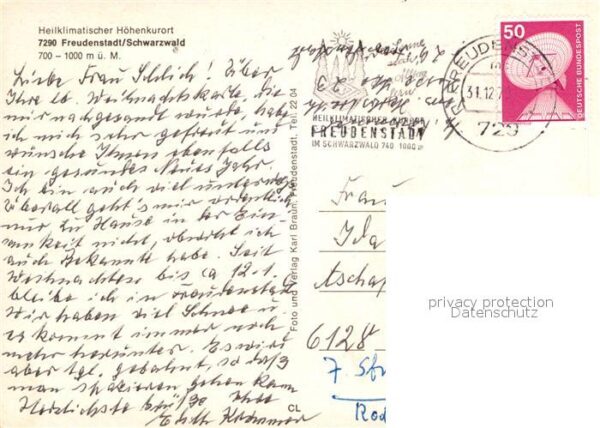 Heilklimatischer Höhenkurort
7290 Freudenstadt/Schwarzwald
700 – 1000 m ü. M.
Liebe Frau Schlich! Über
Ihre lb. Weihnachtskarte, die
mir nachgesandt wurde, habe
ich mich sehr gefreut und
wünsche Ihnen ebenfalls
ein gesundes Neues Jahr.
Ich bin auch viel unterwegs
Überall geht's mir ordentlich
nur zu Hause in der Ein-
samkeit nicht, obwohl ich
auch Bekannte habe. Seit
Weihnachten bis ca 12.1.
bleibe ich in Freudenstadt
Wir haben viel Schnee u.
es kommt immer noch
mehr herunter. Es wird
aber tgl. gebahnt, so daß
man spazieren gehen kann
Herzlichste Grüße Ihre
Edith
CL
Foto und Verlag Karl Braun, Freudenstadt, Tel. 22 04
HEILKLIMATISCHER
FREUDENSTADT
IM SCHWARZWALD 740-1000 m
FREUDENST
31.12.7
729
50
DEUTSCHE BUNDESPOST
Frau
Ida
Aschaf
6128
7 Stu
Rod
privacy protection
Datenschutz